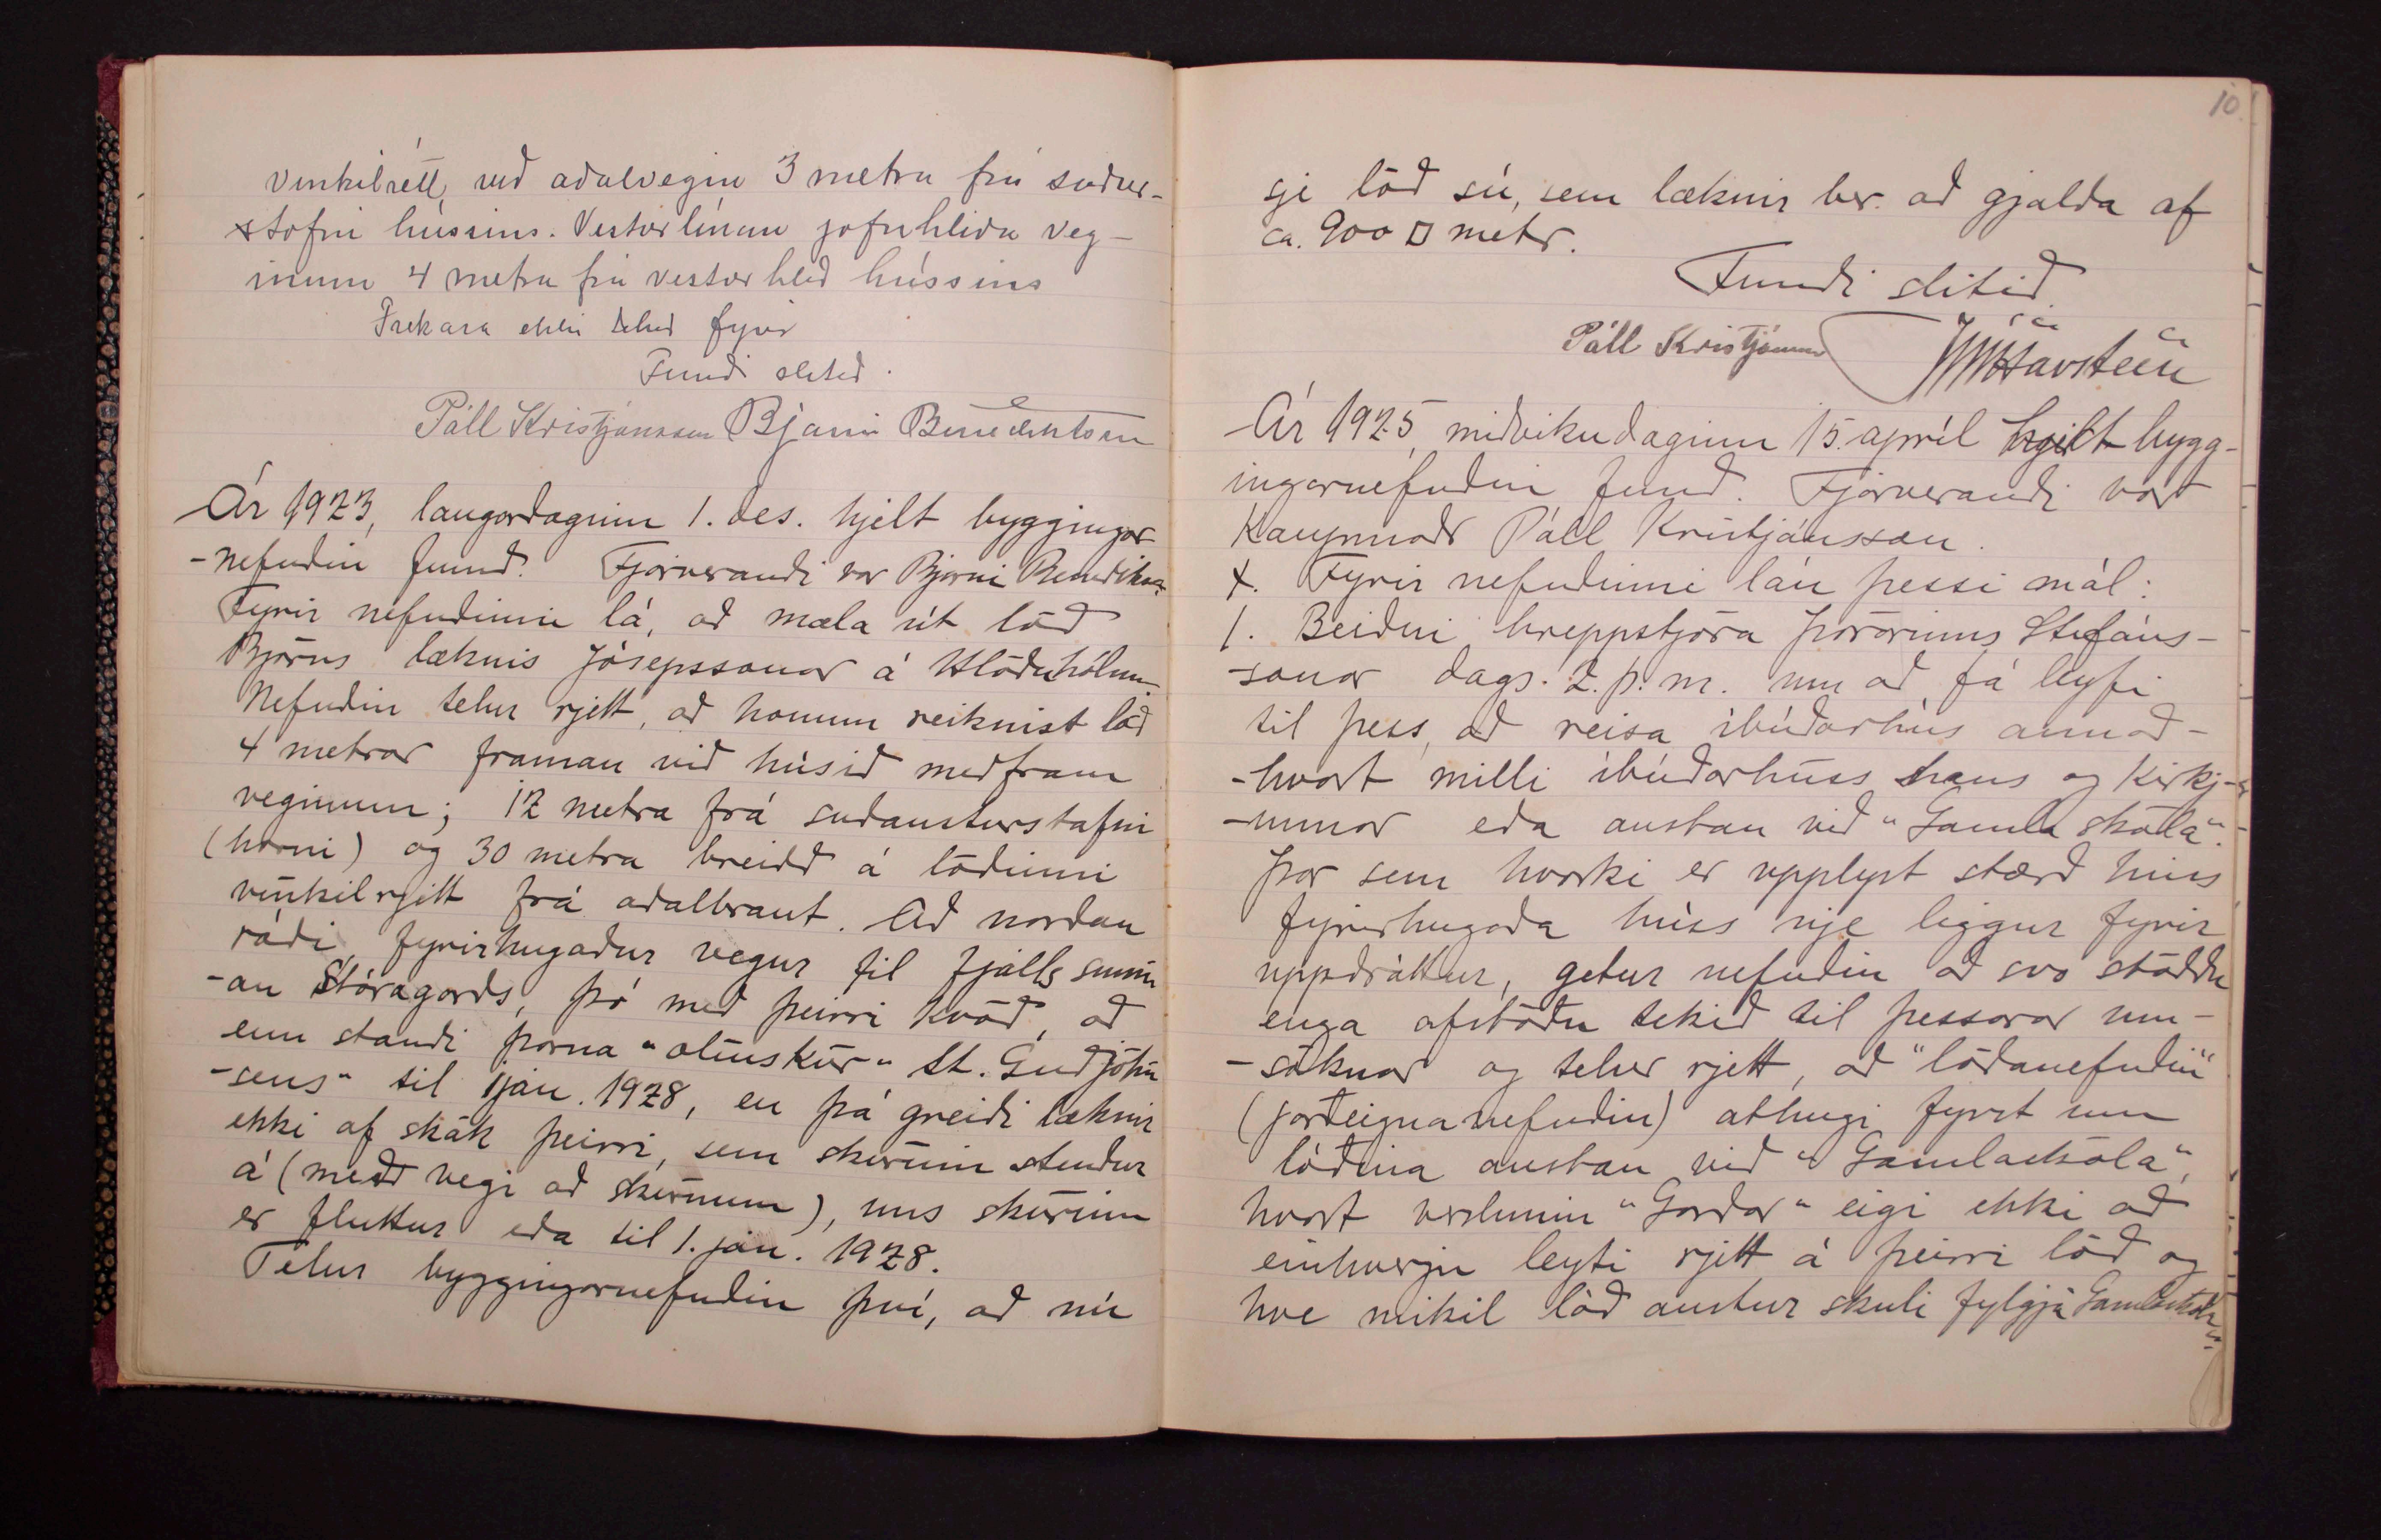 vinkilrétt, við aðalveginn 3 metra frá suður-
stafni hússins. Vesturlínan jafnhliða veg-
inum 4 metra frá vesturhlið hússins
Frekara ekki tekið fyrir
Fundi slitið.
Páll Kristjánsson Bjarni Benediktsson
Ár 1923, laugardaginn 1. des. hjelt byggingar
-nefndin fund. Fjarverandi var Bjarni Benediktss.
Fyrir nefndinni lá, að mæla út lóð
Björns læknis Jósepssonar á Hlöðuhólnum.
Nefndin telur rjett, að honum reiknist lóð
4 metrar framan við húsið meðfram
veginum; 12 metra frá suðausturstafni
(horni) og 30 metra breidd á lóðinni
vinkilrjett frá aðalbraut. Að norðan
ráði fyrirhugaður vegur til fjalls sunn
-an Stóragarðs, þó með þeirri kvöð, að
enn standi þarna "olíuskúr" St. Guðjohn
-sens" til 1 jan. 1928, en þá greiði læknir
ekki af skák þeirri, sem skúrinn stendur
á (með vegi að skúrnum), uns skúrinn
er fluttur eða til 1. jan. 1928.
Telur byggingarnefndin því, að nú
10.
sje lóð sú, sem læknir ber að gjalda af
ca. 900 □ metr.
Fundi slitið.
Páll Kristjánsson JHavsteen
Ár 1925, miðvikudaginn 15. apríl hjelt bygg-
ingarnefndin fund. Fjarverandi var
Kaupmaðr Páll Kristjánsson.
Fyrir nefndinni láu þessi mál:
1. Beiðni hreppstjóra Þórarins Stefáns-
-sonar dags. 2. þ. m. um að fá leyfi
til þess, að reisa íbúðarhús annað-
-hvort milli íbúðarhúss hans og Kirkj-
-unnar eða austan við "Gamla skóla".
Þar sem hvorki er upplýst stærð hins
fyrirhugaða húss nje liggur fyrir
uppdráttur, getur nefndin að svo stöddu
enga afstöðu tekið til þessarar um-
-sóknar og telur rjett, að "lóðanefndin"
(jarðeignanefndin) athugi fyrst um
lóðina austan við "Gamlaskóla",
hvort verslunin "Garðar" eigi ekki að
einhverju leyti rjett á þeirri lóð og
hve mikil lóð austur skuli fylgja Gamlaskóla